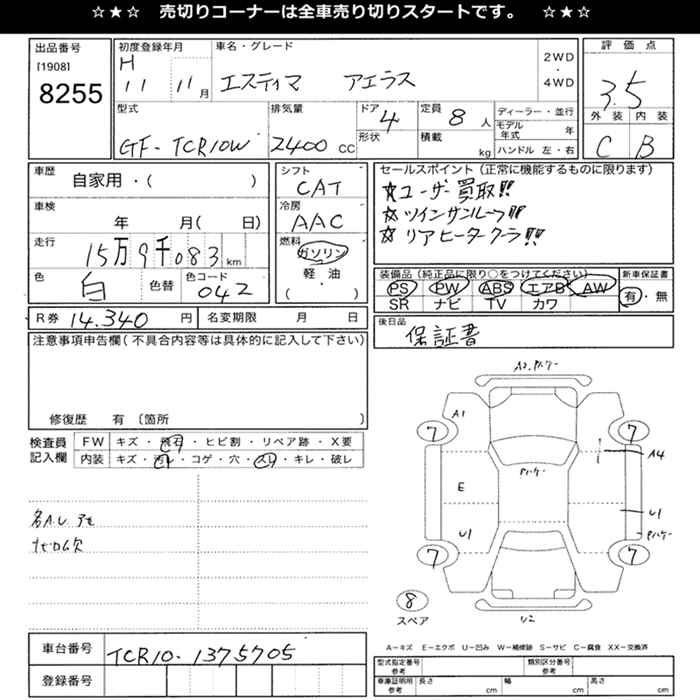 ☆★☆ 売切りコーナーは全車売り切りスタートです。 ☆★☆
出品番号
[1908]
8255
初度登録年月
H 11 11月
車名・グレード
エスティマ アエラス
2WD
・
4WD
評価点
3.5
外装 内装
C B
型式
GF-TCR10W
排気量
2400 CC
ドア
4
形状
定員
8人
積載
kg
ディーラー・並行
モデル年式 年
ハンドル 左・右
車歴
自家用・( )
車検
年 月( 日)
走行
15万9千083 km
色
白
色替
色コード
042
シフト
CAT
冷房
AAC
燃料
ガソリン
軽・油
( )
セールスポイント(正常に機能するものに限ります)
☆ユーザー買取!!
☆ツインサンルーフ!!
☆リアヒータークーラー!!
装備品(純正品に限り○をつけてください)
PS PW ABS エアB AW
SR ナビ TV カワ
新車保証書
有・無
R券 14.340 円
名変期限 月 日
後日品
保証書
注意事項申告欄(不具合内容等は具体的に記入して下さい)
修復歴 有 〔箇所 〕
検査員
記入欄
FW キズ・飛石・ヒビ割・リペア跡・X要
内装 キズ・汚レ・コゲ・穴・スレ・キレ・破レ
各A.U アセ
A2.Pハケー
A1
7
7
Pハケー
A4
E
U1
U1
Pハケー
7
7
8
スペア
U2
A−キズ E−エクボ U−凹み W−補修跡 S−サビ C−腐食 XX−交換済
車台番号
TCR10-1375705
登録番号
型式指定番号
参考
類別区分番号
参考
車庫証明用
参考
長さ cm
幅 cm
高さ cm